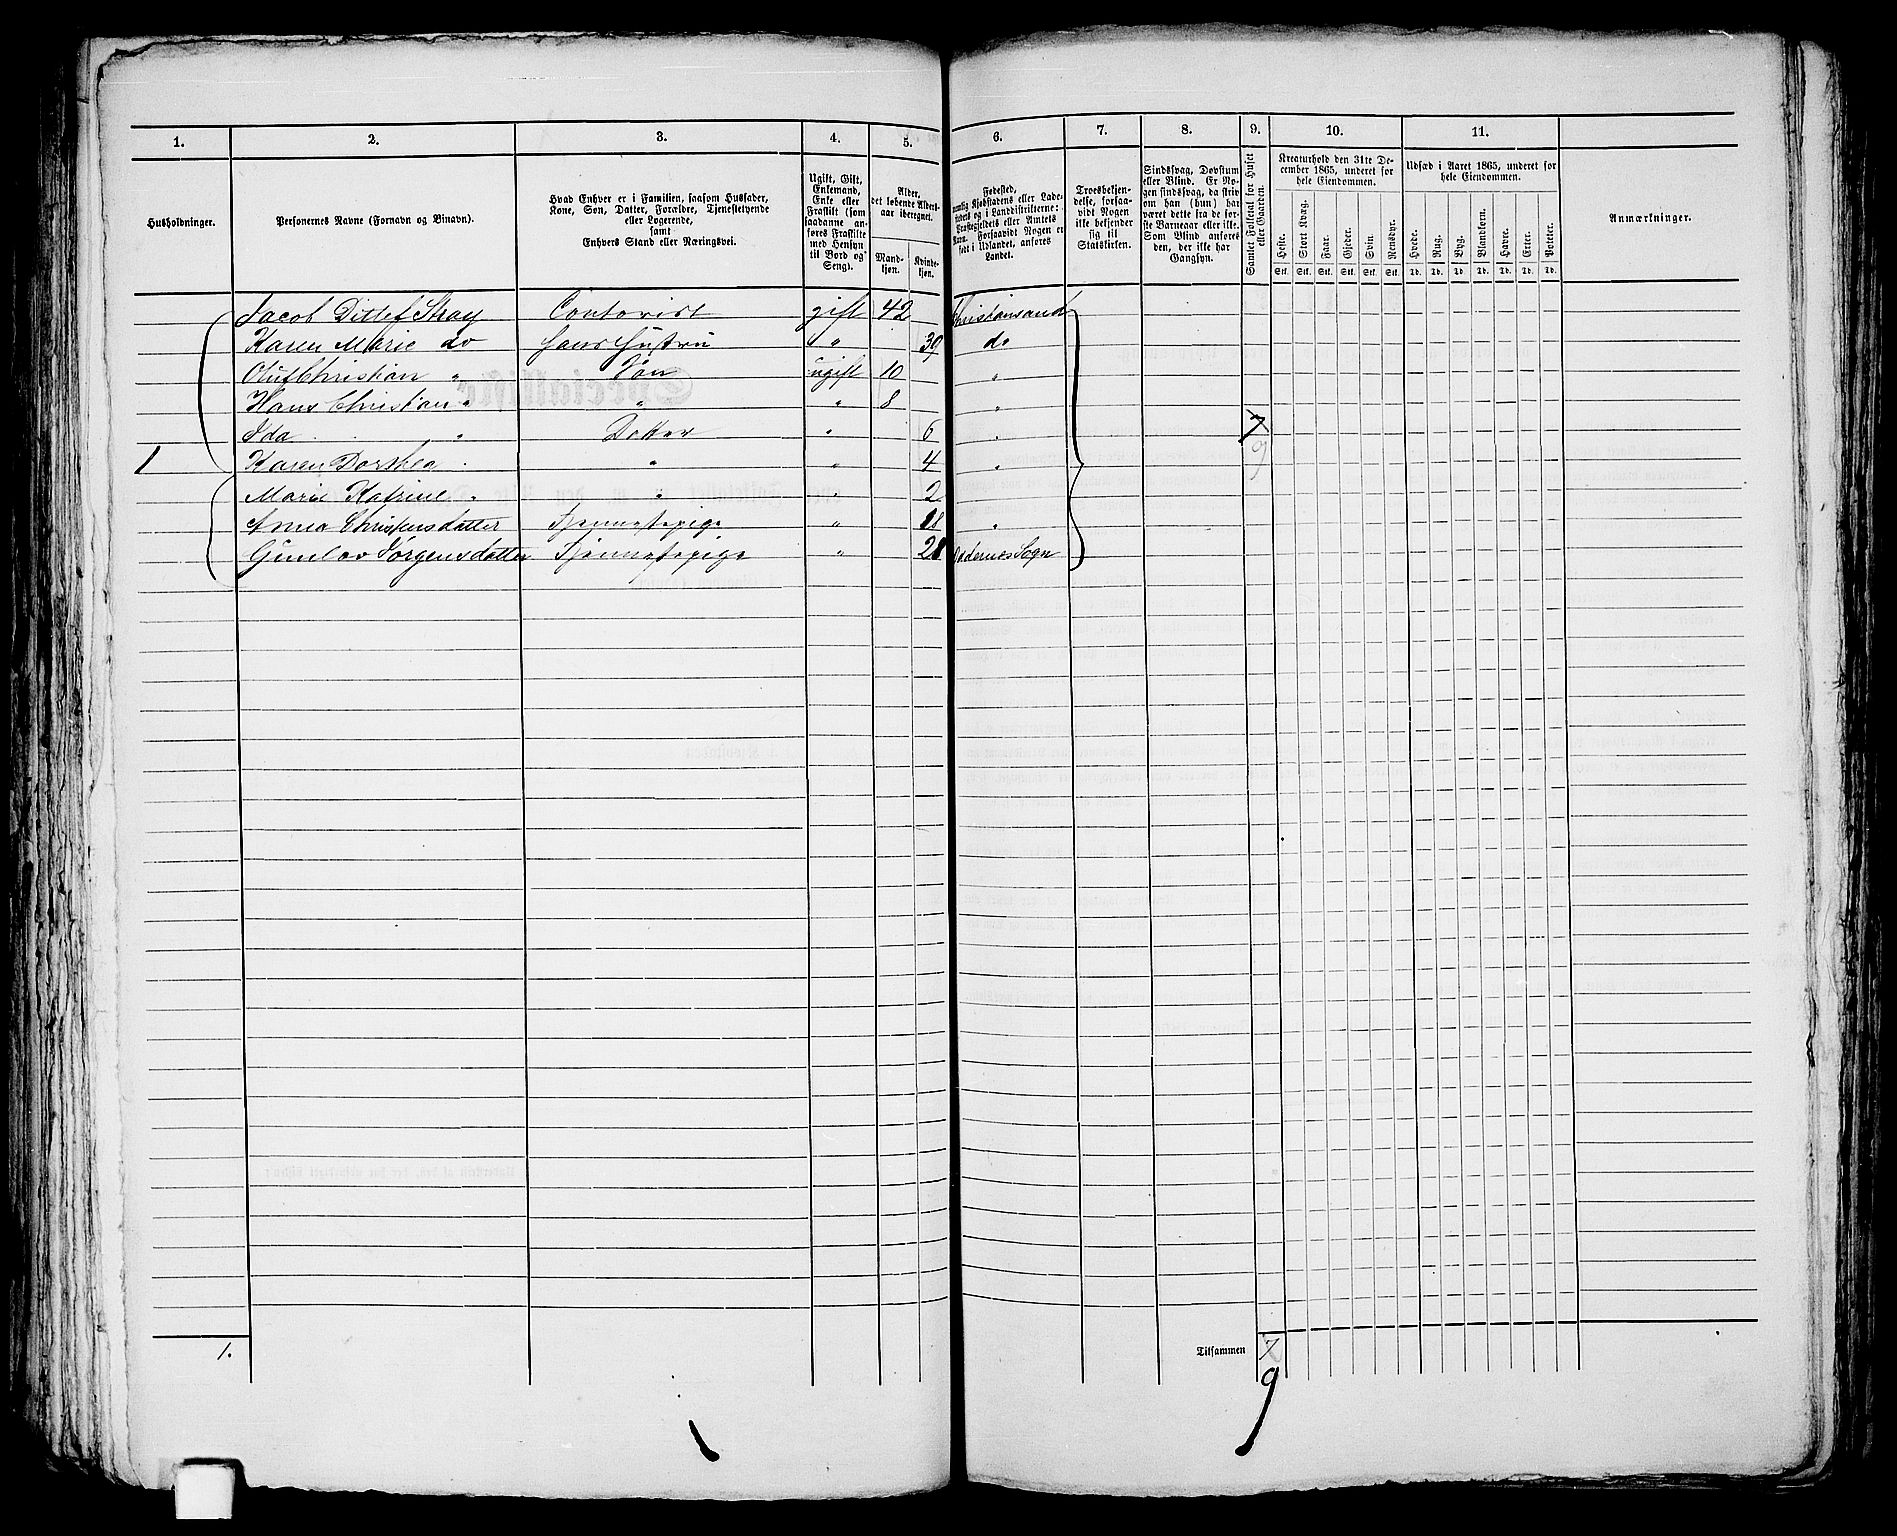 1. 2. 3. 4. 5. 6. 7. 8. 9. 10. 11.
Husholdninger.
Personernes Navne (Fornavn og Binavn).
Hvad Enhver er i Familien, saasom Husfader,
Kone, Søn, Datter, Forældre, Tjenestetyende
eller Logerende,
samt
Enhvers Stand eller Næringsvei.
Ugift, Gift,
Enkemand,
Enke eller
Fraskilt (som
saadanne an-
føres Fraskilte
med Hensyn
til Bord og
Seng).
Alder,
det løbende Alders-
aar iberegnet.
Mand-
kjøn.
Kvinde-
kjøn.
Fødested,
nemlig Kjøbstadens eller Lade-
stedets og i Landdistrikterne:
Præstegjeldets eller Amtets
Navn. Forsaavidt Nogen er
født i Udlandet, anføres
Landet.
Troesbekjen-
delse, forsaa-
vidt Nogen
ikke bekjender
sig til
Statskirken.
Sindssvag, Døvstum
eller Blind. Er No-
gen sindssvag, da skriv
om han (hun) har
været dette fra de før-
ste Barneaar eller ikke.
Som Blind anføres
den, der ikke har
Gangsyn.
Samlet Folketal for Huset
eller Gaarden.
Kreaturhold den 31te De-
cember 1865, underet for
hele Eiendommen.
Heste. Stort Kvæg. Faar. Gjeder. Svin. Rensdyr.
Stk. Stk. Stk. Stk. Stk. Stk.
Udsæd i Aaret 1865, underet for
hele Eiendommen.
Hvede. Rug. Byg. Blandkorn. Havre. Erter. Poteter.
Td. Td. Td. Td. Td. Td. Td.
Anmærkninger.
Jacob Ditlef Stray Contorist gift 42 Christiansand
Karen Marie do Hans Hustru " 39 do
Oluf Christian " Søn ugift 10 "
Hans Christian " " " 8 "
Ida " Datter " 6 " 7
1 Karen Dorthea " " 4 " 9
Marie Katrine " " " 2 "
Anna Christensdatter Tjenestepige " 18 "
Gunlov Jørgensdatter Tjenestepige " Oddernes Sogn
1. Tilsammen 7
9